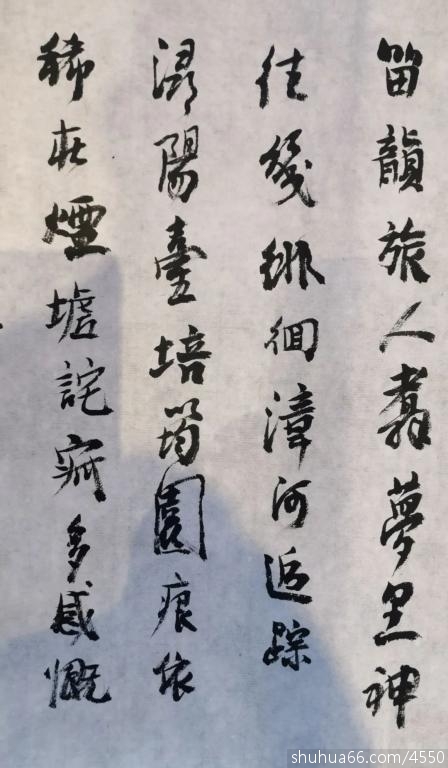 笛韻旅人翥夢里神
往幾徘徊漳河追踪
潯陽臺培筠園痕依
稀在煙墟詫寂多感慨
shuhua66.com/4550